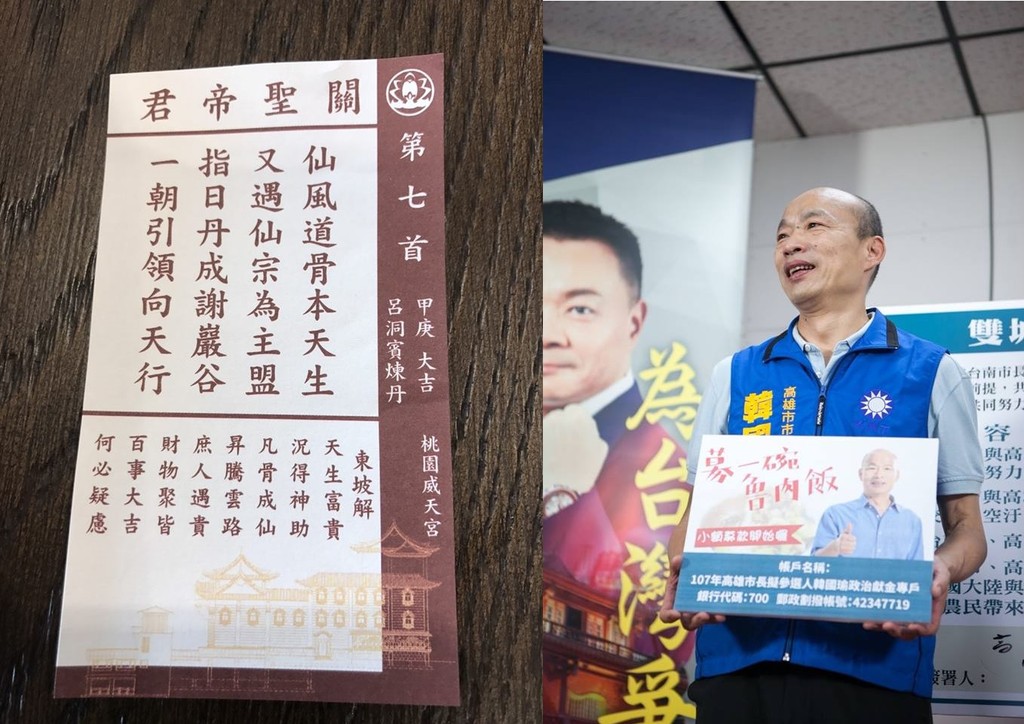 關聖帝君
第七首
甲庚 大吉
呂洞賓煉丹
桃園威天宮
仙風道骨本天生
又遇仙宗為主盟
指日丹成謝巖谷
一朝引領向天行
東坡解
天生富貴
況得神助
凡骨成仙
昇騰雲路
庶人遇貴
財物聚皆
百事大吉
何必疑慮
為台灣爭
高雄市市
韓國
募一碗
魯肉飯
小額募款開始囉
帳戶名稱:
107年高雄市長擬參選人韓國瑜政治獻金專戶
銀行代碼:700 郵政劃撥帳號:42347719
雙城
台南市長
前提，共
共同努力
容
與高
努力
與高
空汙
、高
、高
國大陸與
農民帶來
簽署人：